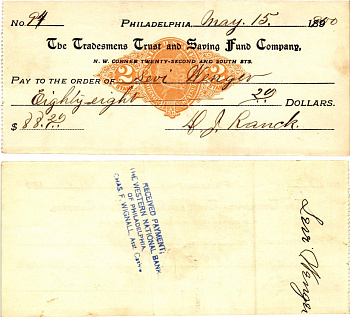 No. 94 PHILADELPHIA, May. 15. 1900
The Tradesmens Trust and Saving Fund Company,
N. W. CORNER TWENTY-SECOND AND SOUTH STS.
PAY TO THE ORDER OF Levi Wenger
Eighty eight 20 DOLLARS.
$ 88.20 D. J. Ranck.
RECEIVED PAYMENT,
THE WESTERN NATIONAL BANK
OF PHILADELPHIA,
CHAS. F. WIGNALL, Asst. Cashier
Levi Wenger